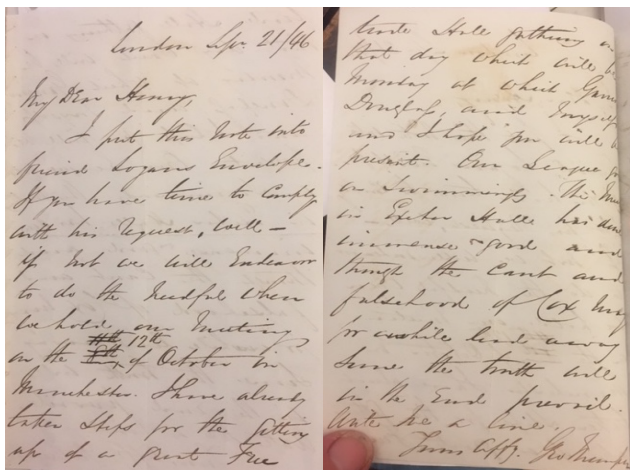 London Sep. 21/46
My Dear Henry,
I put this Note into
friend Logans Envelope.
If you have time to Comply
with his request, well –
if not we will Endeavor
to do the needful when
we hold our Meeting
on the 12th of October in
Manchester. I have already
taken steps for the getting
up of a great Free
trade Hall gathering on
that day which will be
Monday at which Garri
Douglass, and Myself
and I hope you will b
present. Our League go
on Swimmingly. The Mee
in Exeter Halle has don
immense good and
though the Cant and
falsehood of Cox may
for awhile lead away
some the truth will
in the End prevail.
Write me a line.
Yours Affy. Geo Thomps